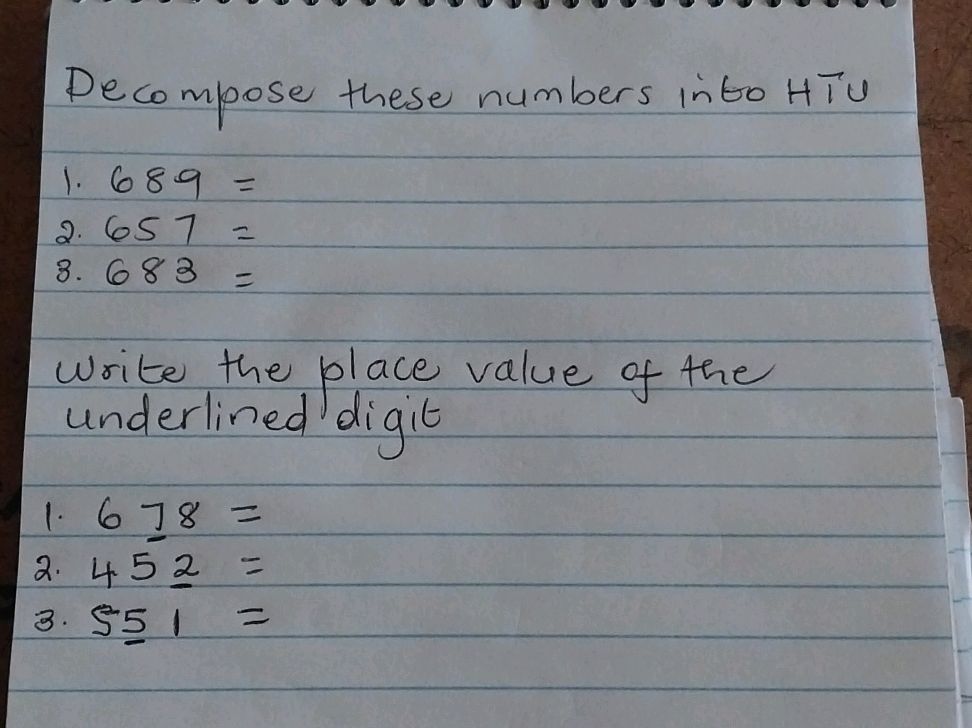 Decompose these numbers into HTU
1. 689 =
2. 657 =
3. 683 =
Write the place value of the
underlined digit
1. 678 =
2. 452 =
3. 551 =